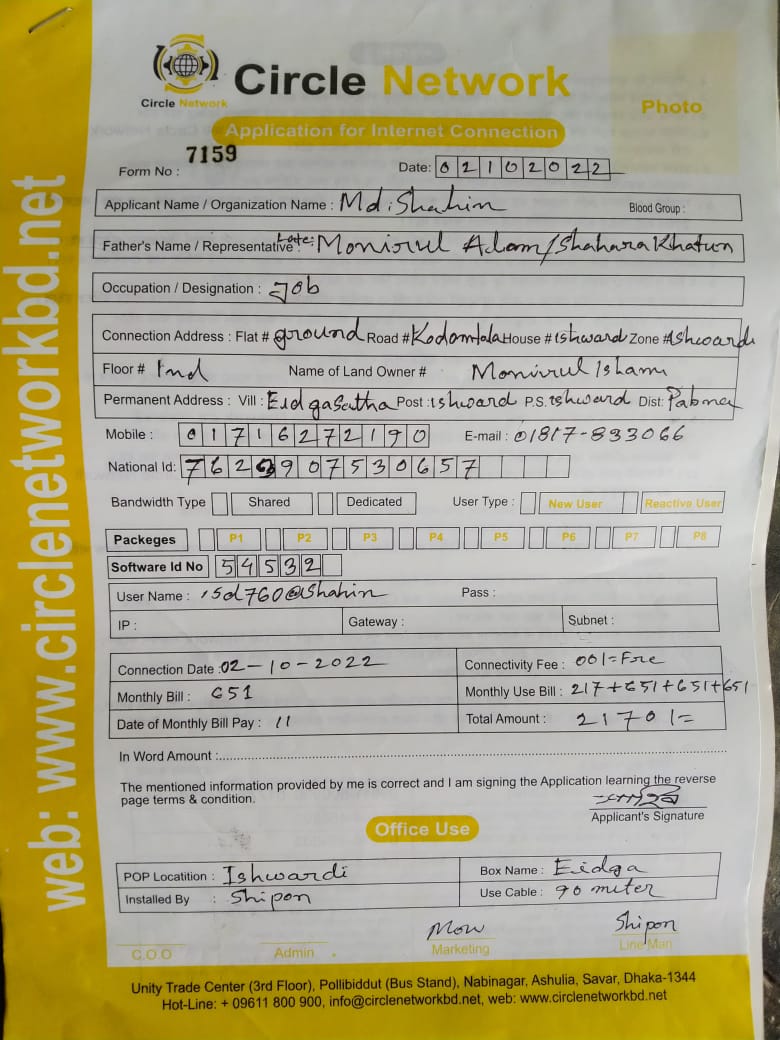 Circle Network
Circle Network
Photo
Application for Internet Connection
Form No : 7159 Date: 02102022
Applicant Name / Organization Name : Md. Shahin Blood Group :
Father's Name / Representative : Late: Monirul Adam/Shahara Khatun
Occupation / Designation : Job
Connection Address : Flat # ground Road # Kodomtala House # Ishward Zone # Ishwardi
Floor # Ind Name of Land Owner # Monirul Islam
Permanent Address : Vill : Eidgasatha Post : Ishward P.S. Ishward Dist: Pabna
Mobile : 01716272190 E-mail : 01817-833066
National Id: 7629907530657
Bandwidth Type Shared Dedicated User Type : New User Reactive User
Packeges P1 P2 P3 P4 P5 P6 P7 P8
Software Id No 54532
User Name : isd760@shahin Pass :
IP : Gateway : Subnet :
Connection Date : 02-10-2022 Connectivity Fee : 00/= Fre
Monthly Bill : 651 Monthly Use Bill : 217+651+651+651
Date of Monthly Bill Pay : 11 Total Amount : 2170/=
In Word Amount :
The mentioned information provided by me is correct and I am signing the Application learning the reverse
page terms & condition.
Applicant's Signature
Office Use
POP Locatition : Ishwardi Box Name : Eidga
Installed By : Shipon Use Cable : 90 meter
C.O.O Admin Mow Marketing Shipon Line Man
Unity Trade Center (3rd Floor), Pollibiddut (Bus Stand), Nabinagar, Ashulia, Savar, Dhaka-1344
Hot-Line: + 09611 800 900, info@circlenetworkbd.net, web: www.circlenetworkbd.net
web: www.circlenetworkbd.net